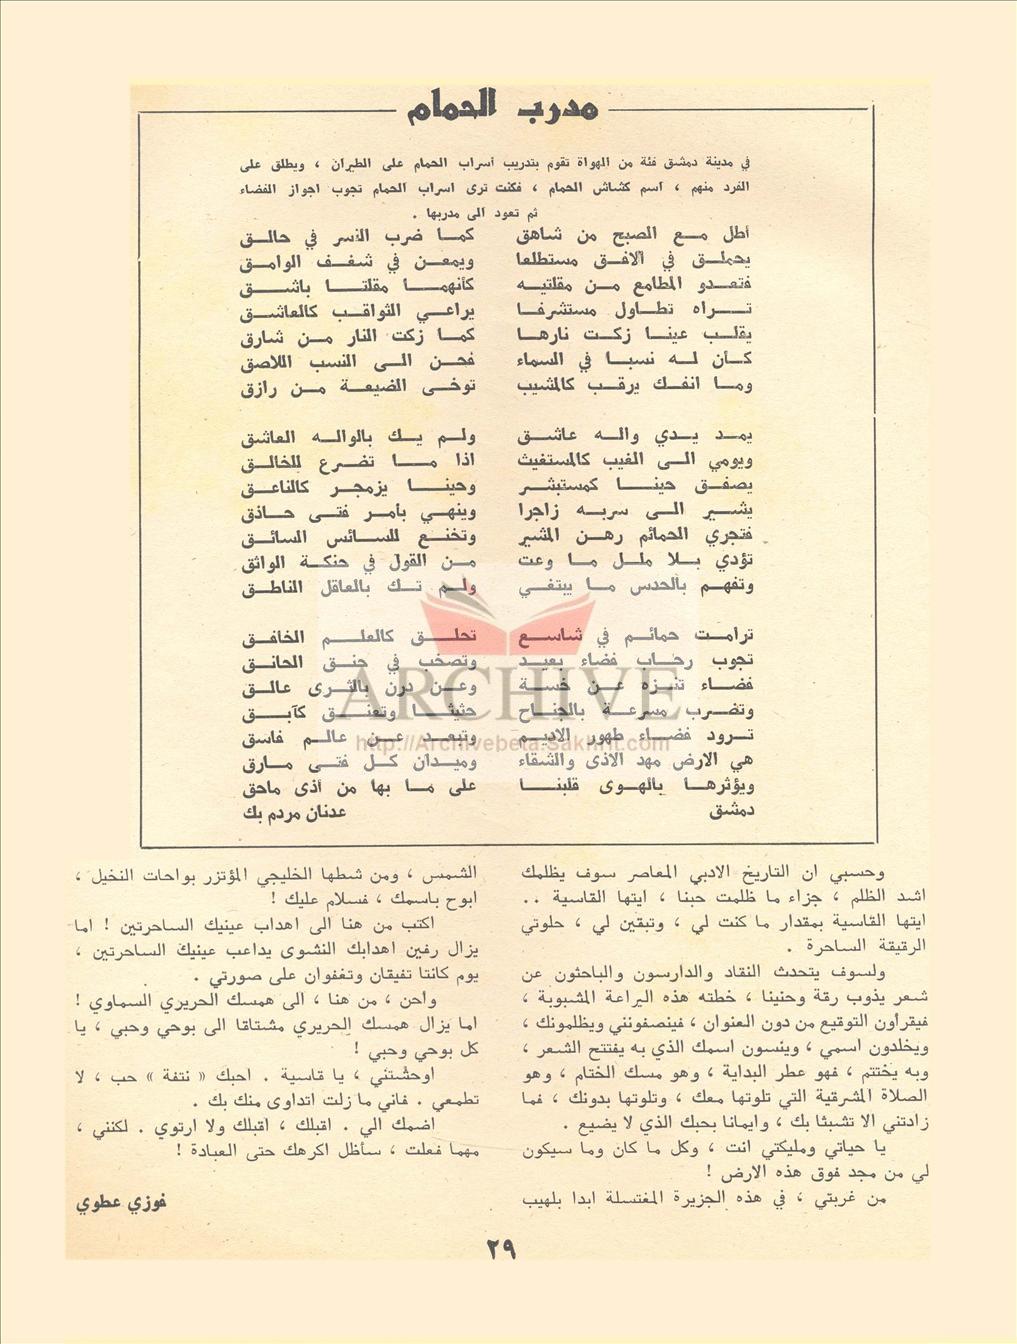 مدرب الحمام
في مدينة دمشق فئة من الهواة تقوم بتدريب أسراب الحمام على الطيران ، ويطلق على
الفرد منهم ، اسم كشاش الحمام ، فكنت ترى اسراب الحمام تجوب اجواز الفضاء
ثم تعود الى مدربها .
أطل مع الصبح من شاهق كما ضرب النسر في حالق
يحملق في الافق مستطلعا ويمعن في شغف الوامق
فتعدو المطامع من مقلتيه كأنهما مقلتا باشق
تراه تطاول مستشرفا يراعي الثواقب كالعاشق
يقلب عينا زكت نارها كما زكت النار من شارق
كأن له نسبا في السماء فحن الى النسب اللاصق
وما انفك يرقب كالمشيب توخى الضيعة من رازق
يمد يدي واله عاشق ولم يك بالواله العاشق
ويومي الى الغيب كالمستغيث اذا ما تضرع للخالق
يصفق حينا كمستبشر وحينا يزمجر كالناعق
يشير الى سربه زاجرا وينهي بأمر فتى حاذق
فتجري الحمائم رهن المشير وتخنع للسائس السائق
تؤدي بلا ملل ما وعت من القول في حنكة الواثق
وتفهم بالحدس ما يبتغي ولم تك بالعاقل الناطق
ترامت حمائم في شاسع تحلق كالعلم الخافق
تجوب رحاب فضاء بعيد وتصخب في حنق الحانق
فضاء تنزه عن خسة وعن درن بالثرى عالق
وتضرب مسرعة بالجناح حثيثا وتعنق كآبق
ترود فضاء طهور الاديم وتبعد عن عالم فاسق
هي الارض مهد الاذى والشقاء وميدان كل فتى مارق
ويؤثرها بالهوى قلبنا على ما بها من أذى ماحق
دمشق عدنان مردم بك
ARCHIVE
http://Archivebeta.Sakhrit.com
وحسبي ان التاريخ الادبي المعاصر سوف يظلمك
اشد الظلم ، جزاء ما ظلمت حبنا ، ايتها القاسية ..
ايتها القاسية بمقدار ما كنت لي ، وتبقين لي ، حلوتي
الرقيقة الساحرة .
ولسوف يتحدث النقاد والدارسون والباحثون عن
شعر يذوب رقة وحنينا ، خطته هذه اليراعة المشبوبة ،
فيقرأون التوقيع من دون العنوان ، فينصفونني ويظلمونك ،
ويخلدون اسمي ، وينسون اسمك الذي به يفتتح الشعر ،
وبه يختتم ، فهو عطر البداية ، وهو مسك الختام ، وهو
الصلاة المشرقية التي تلوتها معك ، وتلوتها بدونك ، فما
زادتني الا تشبثا بك ، وايمانا بحبك الذي لا يضيع .
يا حياتي ومليكتي انت ، وكل ما كان وما سيكون
لي من مجد فوق هذه الارض !
من غربتي ، في هذه الجزيرة المغتسلة ابدا بلهيب
الشمس ، ومن شطها الخليجي المؤتزر بواحات النخيل ،
ابوح باسمك ، فسلام عليك !
اكتب من هنا الى اهداب عينيك الساحرتين ! اما
يزال رفين اهدابك النشوى يداعب عينيك الساحرتين ،
يوم كانتا تفيقان وتغفوان على صورتي .
وأحن ، من هنا ، الى همسك الحريري السماوي !
اما يزال همسك الحريري مشتاقا الى بوحي وحبي ، يا
كل بوحي وحبي !
اوحشتني ، يا قاسية . احبك « نتفة » حب ، لا
تطمعي . فاني ما زلت اتداوى منك بك .
اضمك الي . اقبلك ، اقبلك ولا ارتوي . لكنني ،
مهما فعلت ، سأظل اكرهك حتى العبادة !
فوزي عطوي
٢٩